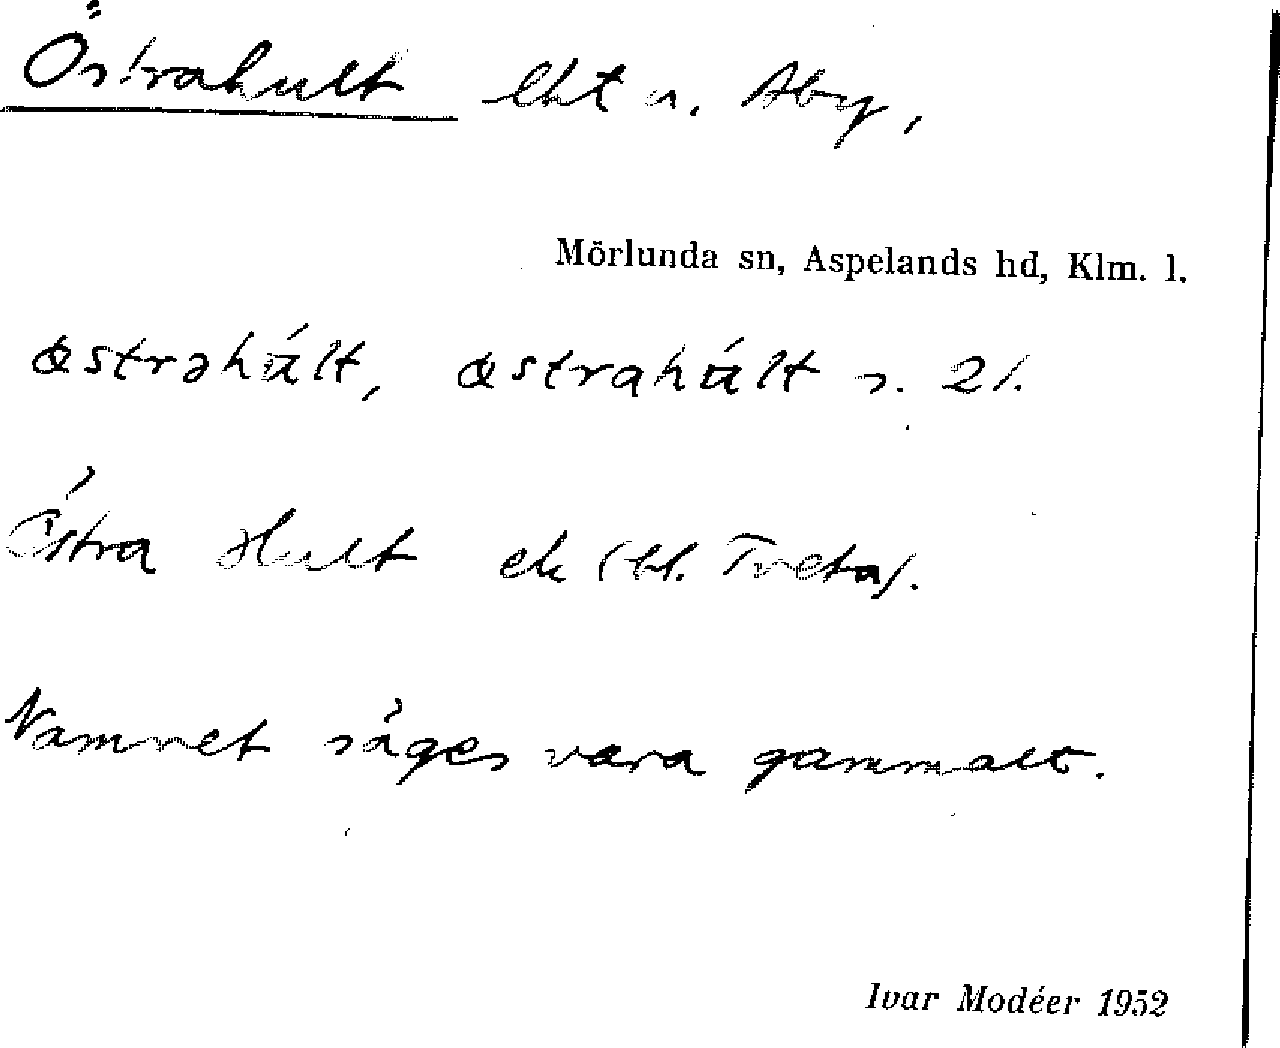 Östrahult lht u. Åby,
Mörlunda sn, Aspelands hd, Klm. l.
östrəhált, östrahált s. 21.
Östra Hult ek (bl. Tveta).
Namnet säges vara gammalt.
Ivar Modéer 1952